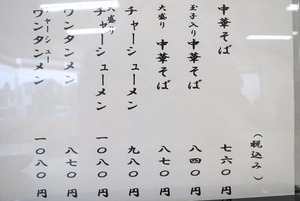 中華そば 七六〇円
玉子入り 中華そば 八四〇円
大盛り 中華そば 八七〇円
チャーシューメン 九八〇円
大盛り チャーシューメン 一〇八〇円
ワンタンメン 八七〇円
チャーシュー ワンタンメン 一〇八〇円
(税込み)